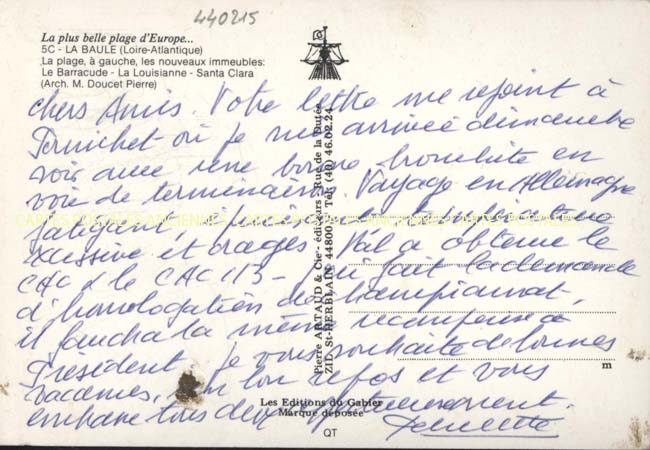 440215
La plus belle plage d'Europe...
5C - LA BAULE (Loire-Atlantique)
La plage, à gauche, les nouveaux immeubles:
Le Barracude - La Louisianne - Santa Clara
(Arch. M. Doucet Pierre)
Chers Amis. Votre lettre me rejoint à
Pornichet où je suis arrivée dimanche
soir avec une bonne bronchite en
voie de terminaison. Voyage en Allemagne
fatigant,
excessive et orages. Val a obtenu le
CAC & le CACIB - fait la demande
d'homologation de championnat,
il faudra la même récompense à
Président. Je vous souhaite de bonnes
vacances, bon repos et vous
embrasse tous deux
CARTES POSTALES ANCIENNES
Pierre ARTAUD & Cie - éditeurs - Rue de la Dutée
ZIL St-HERBLAIN 44800 Tél. (40) 46.02.24
m
Les Editions du Gabier
Marque déposée
QT